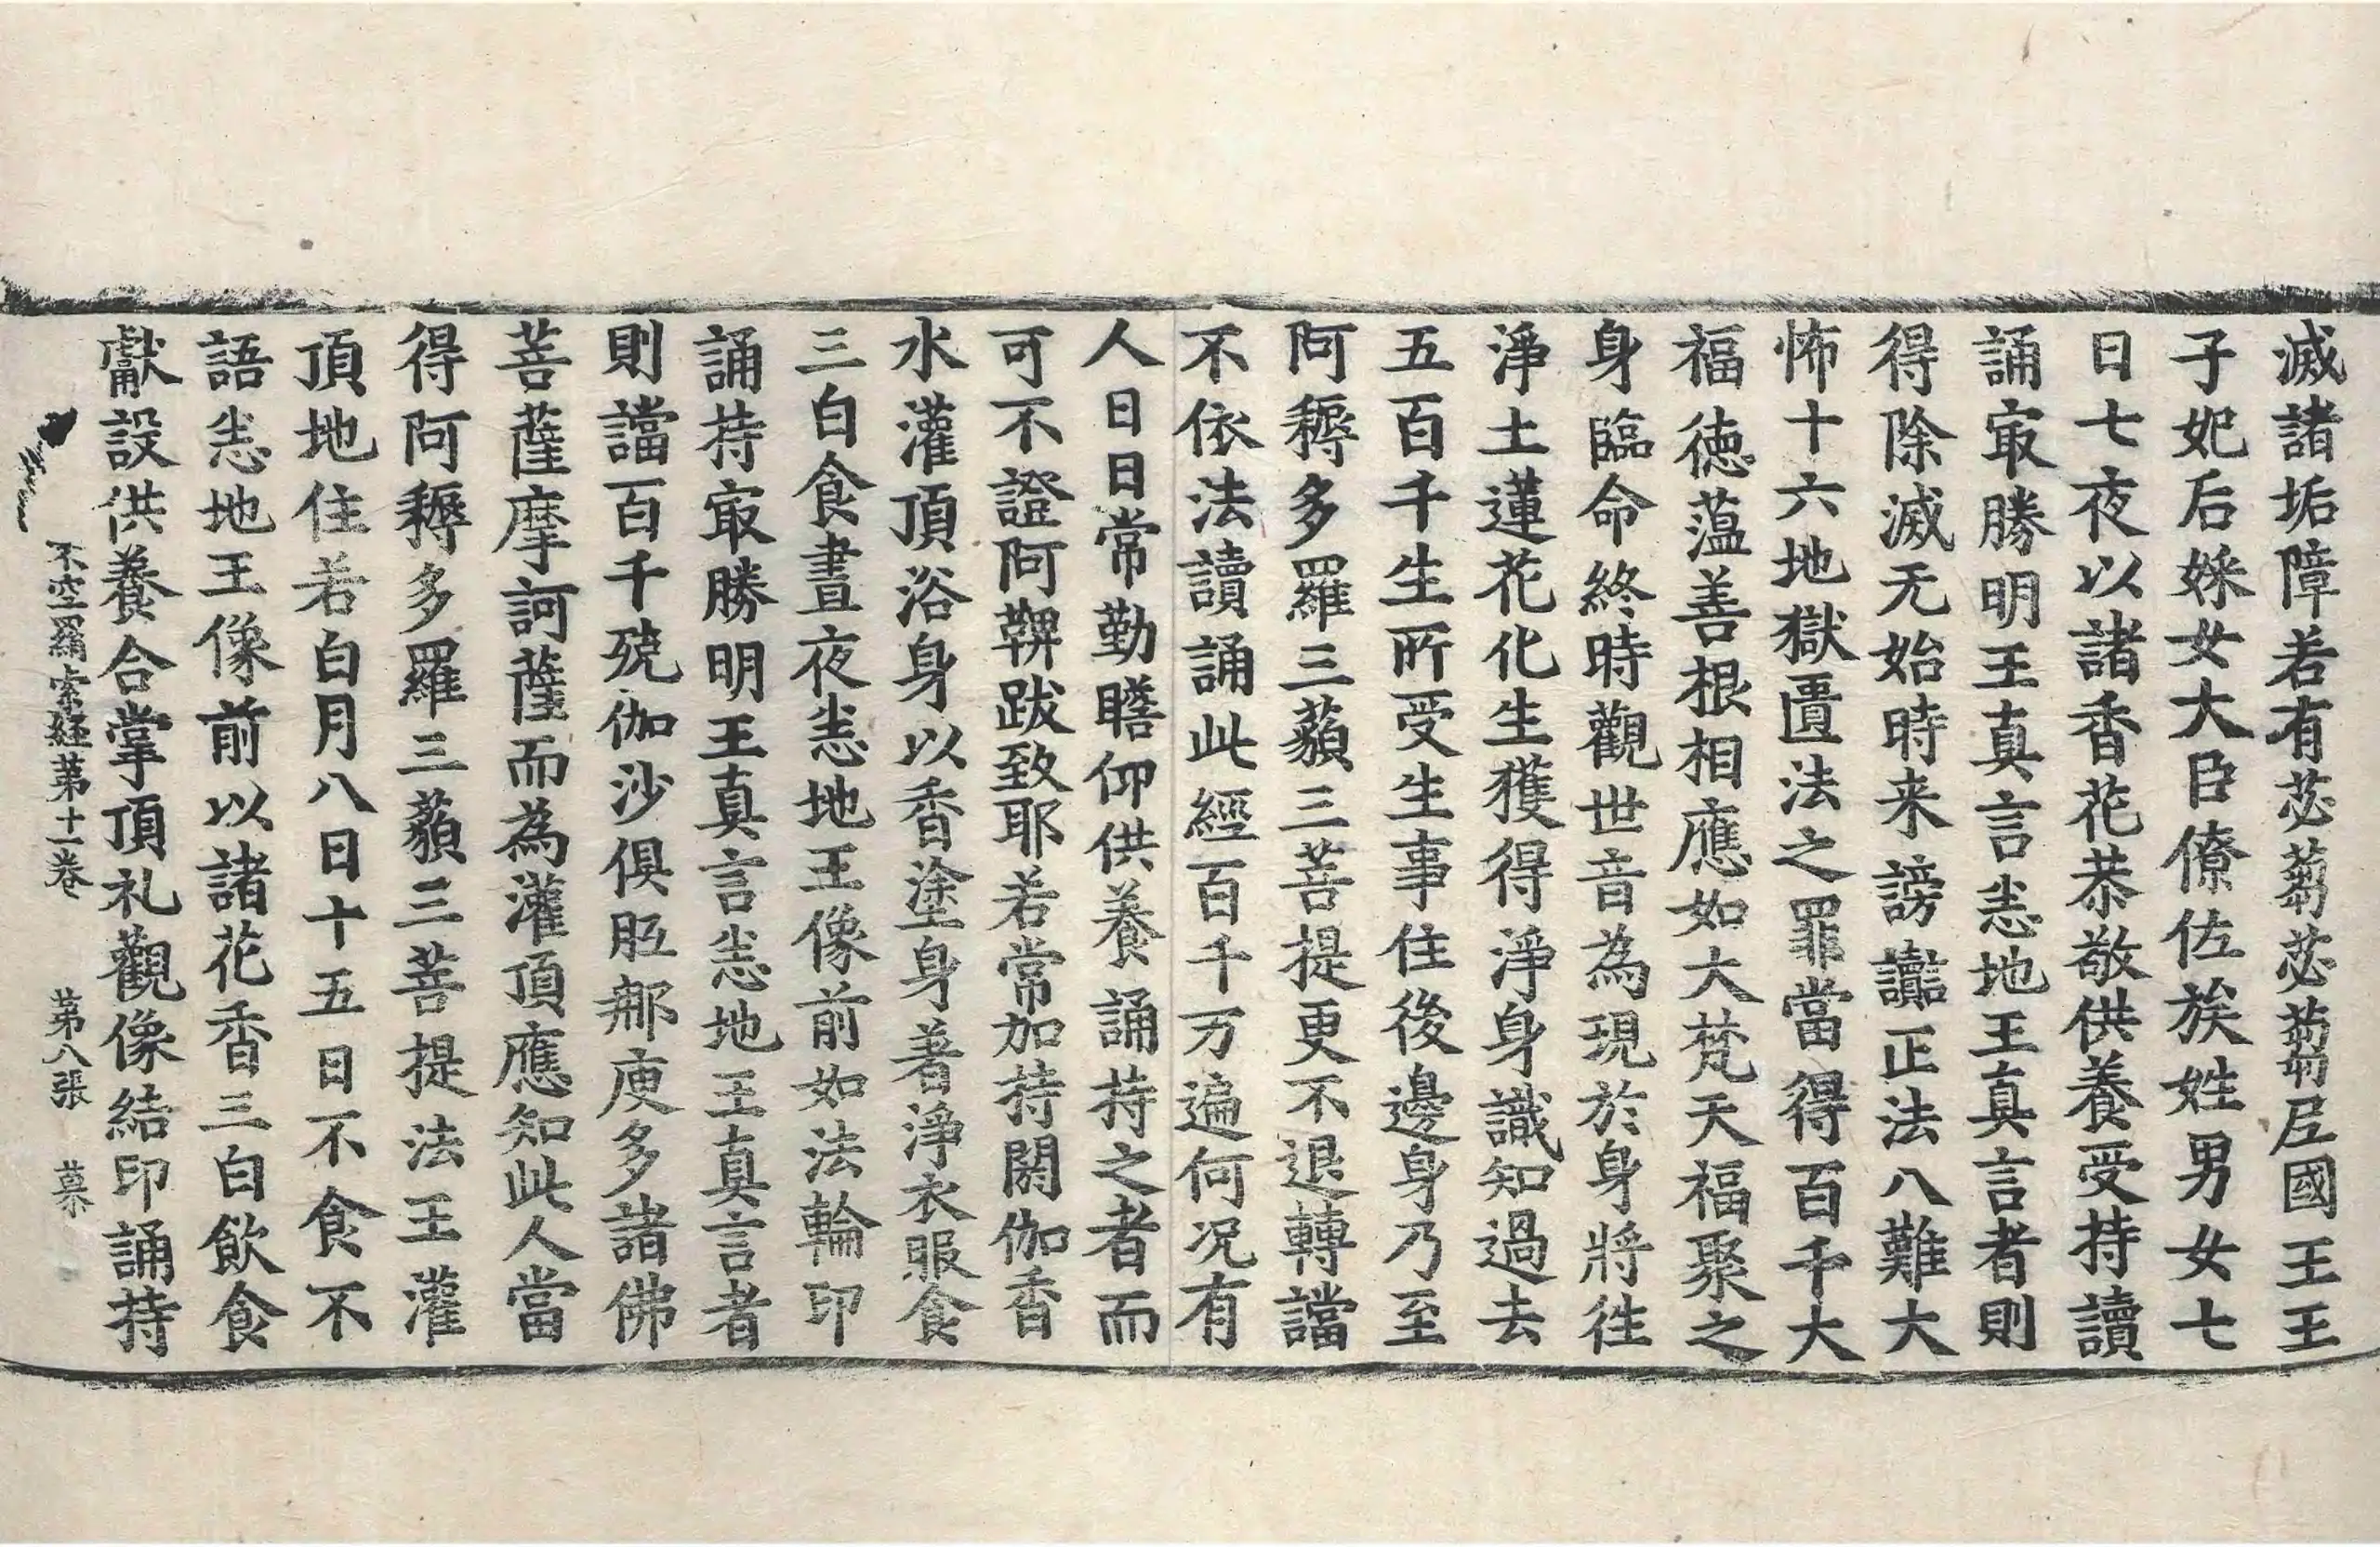 滅諸垢障若有苾蒭苾蒭尼國王王
子妃后婇女大臣僚佐族姓男女七
日七夜以諸香花恭敬供養受持讀
誦㝡勝明王真言恙地王真言者則
得除滅无始時来謗讟正法八難大
怖十六地獄匱法之罪當得百千大
福德蕰善根相應如大梵天福聚之
身臨命終時觀世音為現於身將徃
淨土蓮花化生獲得淨身識知過去
五百千生所受生事住後邊身乃至
阿耨多羅三藐三菩提更不退轉讜
不依法讀誦此經百千万遍何况有
人日日常勤瞻仰供養誦持之者而
可不證阿鞞跋致耶若常加持閼伽香
水灌頂浴身以香塗身著淨衣服食
三白食晝夜恙地王像前如法輪印
誦持㝡勝明王真言恙地王真言者
則讜百千殑伽沙俱胝𨚗庾多諸佛
菩薩摩訶薩而為灌頂應知此人當
得阿耨多羅三藐三菩提法王灌
頂地住若白月八日十五日不食不
語恙地王像前以諸花香三白飲食
獻設供養合掌頂礼觀像結印誦持
不空羂索経苐十一卷 苐八張 慕